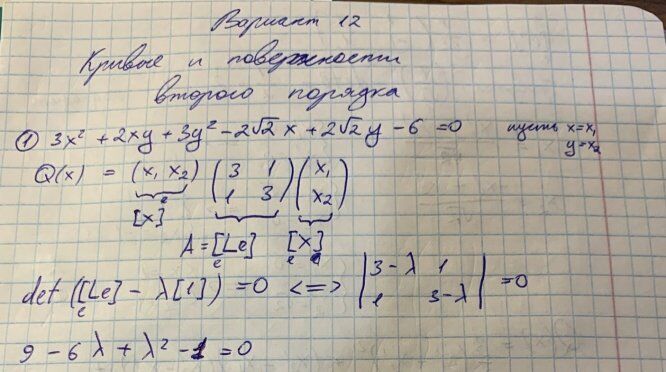 Вариант 12
Кривые и поверхности
второго порядка
① 3x² + 2xy + 3y² - 2√2 x + 2√2 y - 6 = 0 пусть x = x₁
y = x₂
Q(x) = (x₁ x₂) (3 1) (x₁)
(1 3) (x₂)
[x]
e
A = [Le] [x]
e e
det ([Le] - λ[1]) = 0 <=> |3-λ 1| = 0
e |1 3-λ|
9 - 6λ + λ² - 1 = 0